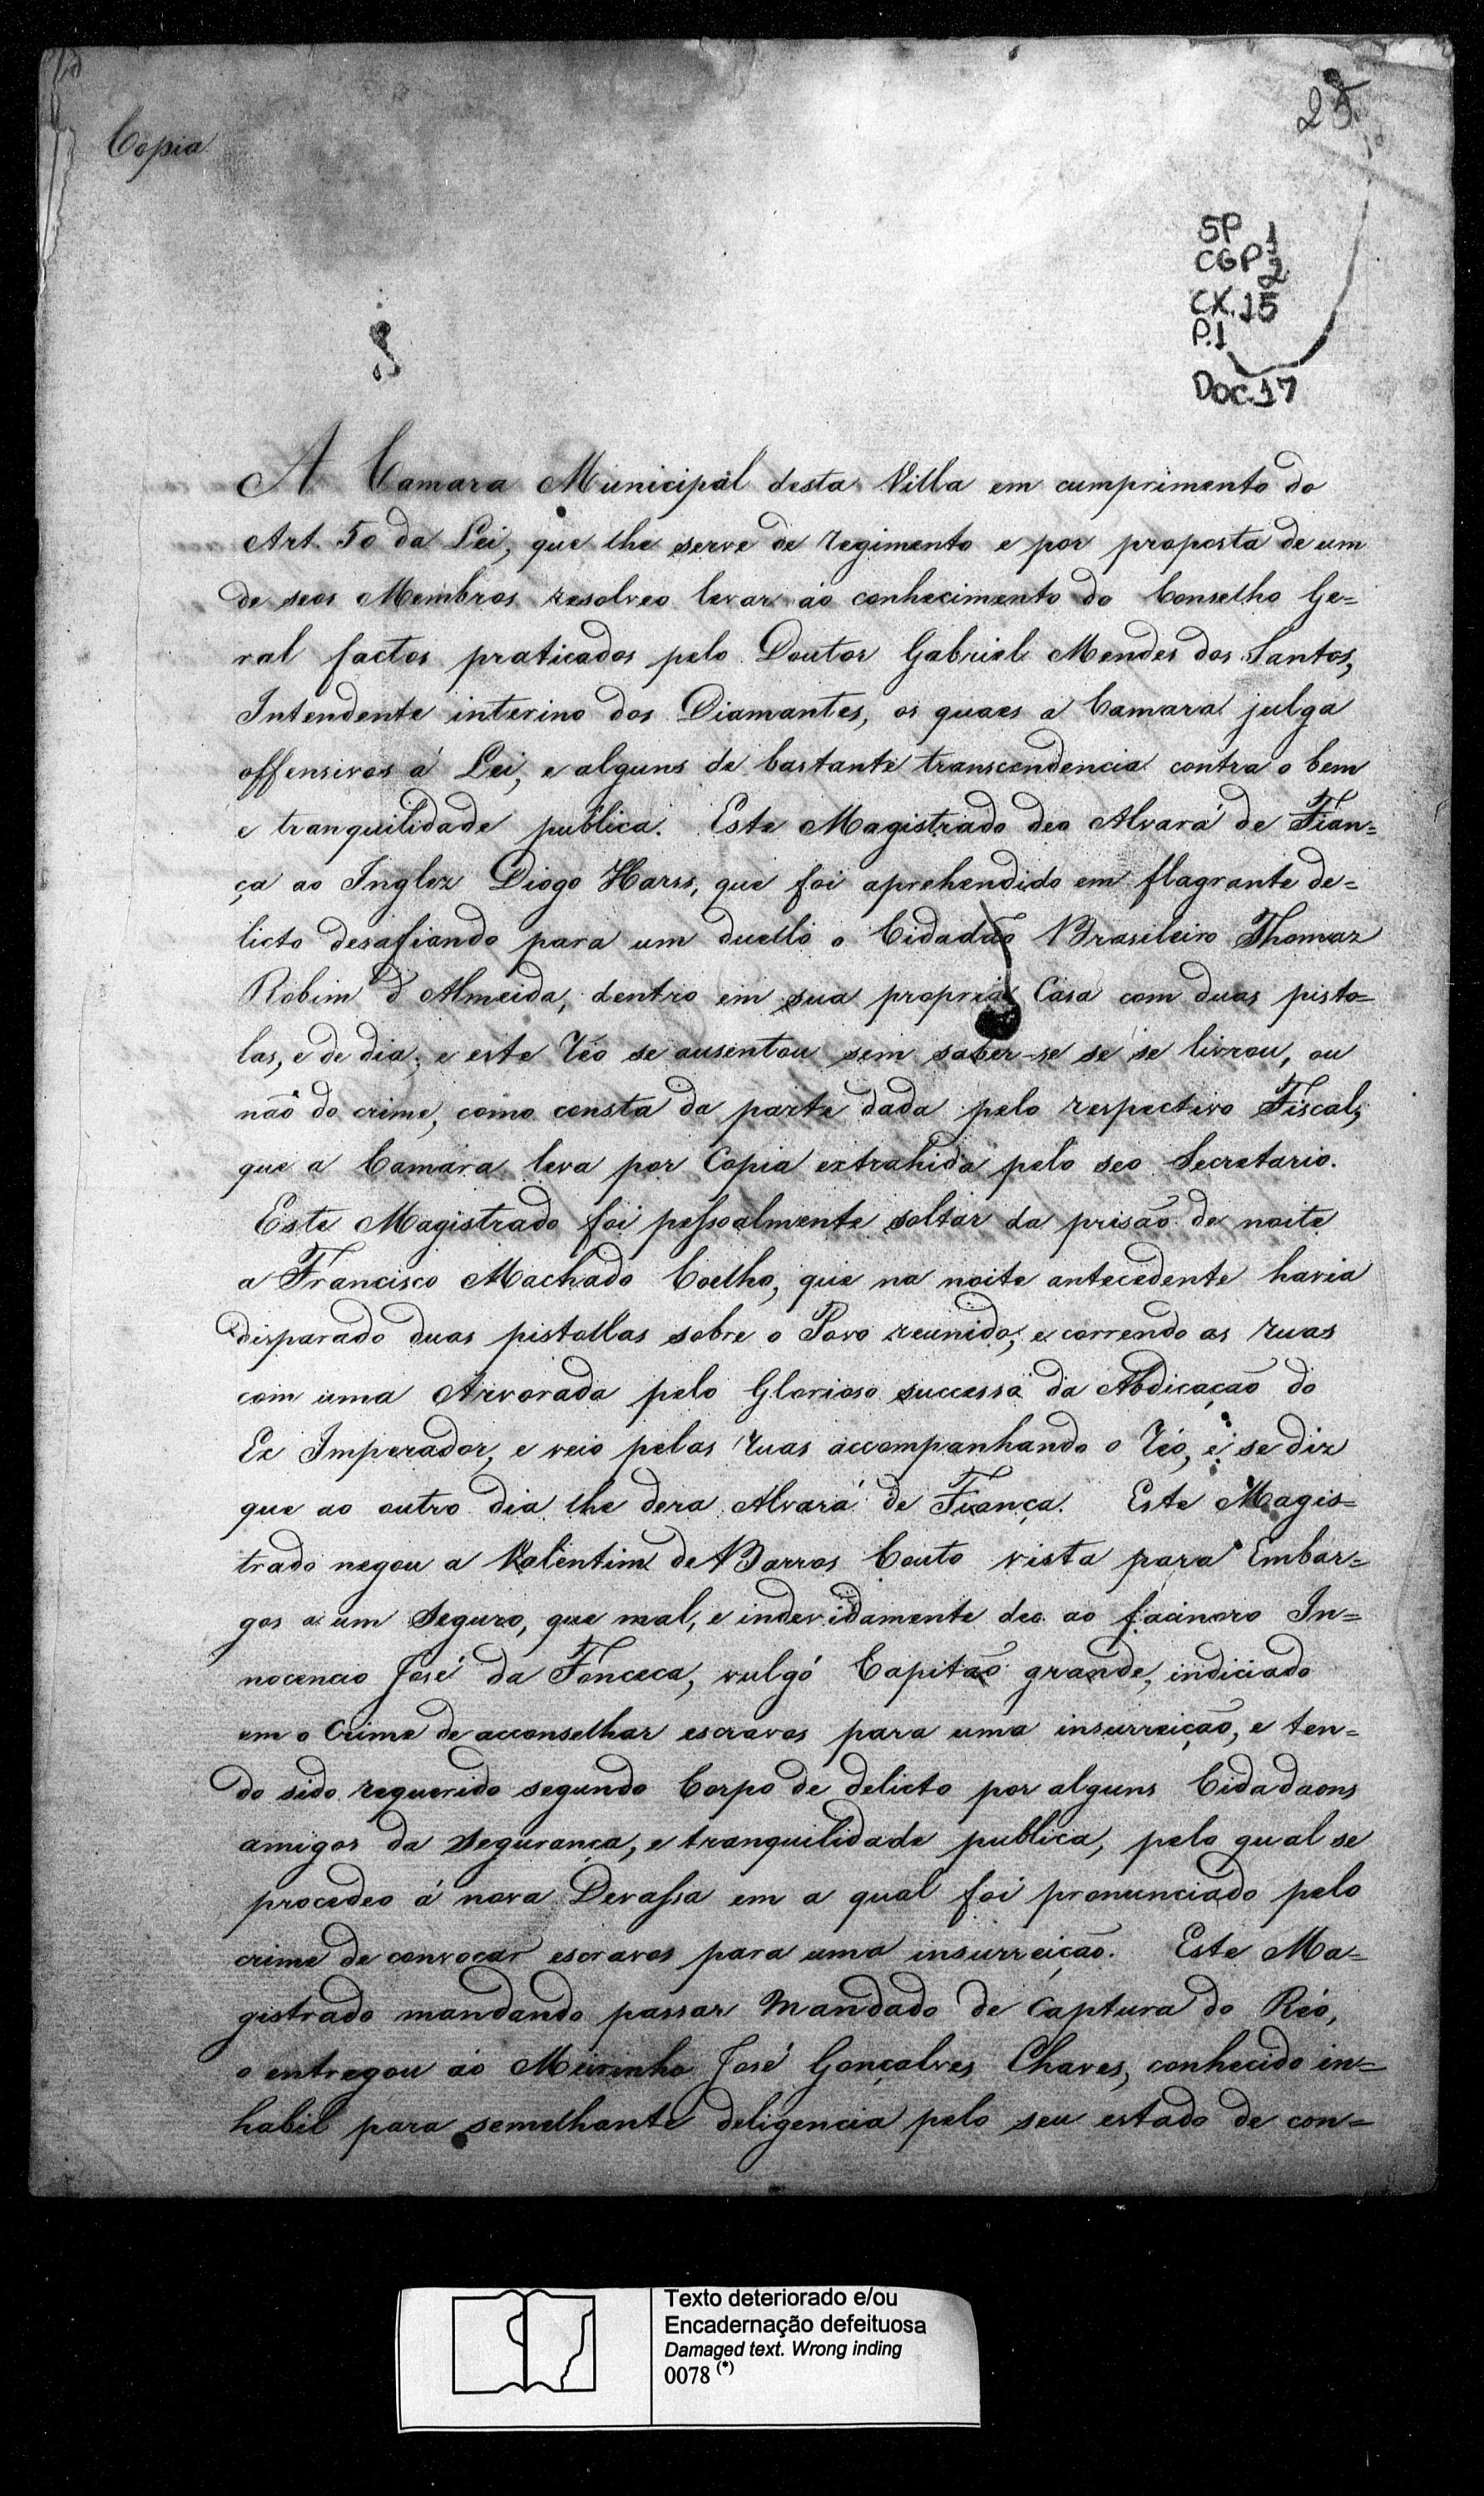 Copia
25
SP 1
CGP 2
CX. 15
P.1
Doc. 17
A Camara Municipal desta Villa em cumprimento do
Art. 50 da Lei, que lhe serve de regimento e por proposta de um
de seos Membros resolveo levar ao conhecimento do Conselho Ge=
ral factos praticados pelo Doutor Gabriel Mendes dos Santos,
Intendente interino dos Diamantes, os quaes a Camara julga
offensivos á Lei, e alguns de bastante transcendencia contra o bem
e tranquilidade publica. Este Magistrado deo Alvará de Fian=
ça ao Inglez Diogo Harss, que foi aprehendido em flagrante de=
licto desafiando para um duello o Cidadão Brasileiro Thomaz
Robim d'Almeida, dentro em sua propria Casa com duas pisto=
las, e de dia; e este Réo se ausentou sem saber-se se se livrou, ou
não do crime, como consta da parte dada pelo respectivo Fiscal,
que a Camara leva por Copia extrahida pelo seo Secretario.
Este Magistrado foi pessoalmente soltar da prisão de noite
a Francisco Machado Coelho, que na noite antecedente havia
disparado duas pistollas sobre o Povo reunido, e correndo as ruas
com uma Arvorada pelo Glorioso successo da Abdicação do
Ex Imperador, e veio pelas ruas accompanhando o Réo, e se diz
que ao outro dia lhe dera Alvará de Fiança. Este Magis=
trado negou a Valentim de Barros Couto vista para Embar=
gos a um Seguro, que mal, e indevidamente deo ao facinoro In=
nocencio José da Fonceca, vulgó Capitão grande, indiciado
em o Crime de acconselhar escravos para uma insurreição, e ten=
do sido requerido segundo Corpo de delicto por alguns Cidadaons
amigos da Segurança, e tranquilidade publica, pelo qual se
procedeo á nova Devassa em a qual foi pronunciado pelo
crime de convocar escravos para uma insurreição. Este Ma=
gistrado mandando passar Mandado de Captura do Réo,
o entregou ao Meirinho José Gonçalves Chaves, conhecido in=
habil para semelhante deligencia pelo seu estado de con=
Texto deteriorado e/ou
Encadernação defeituosa
Damaged text. Wrong inding
0078 (*)